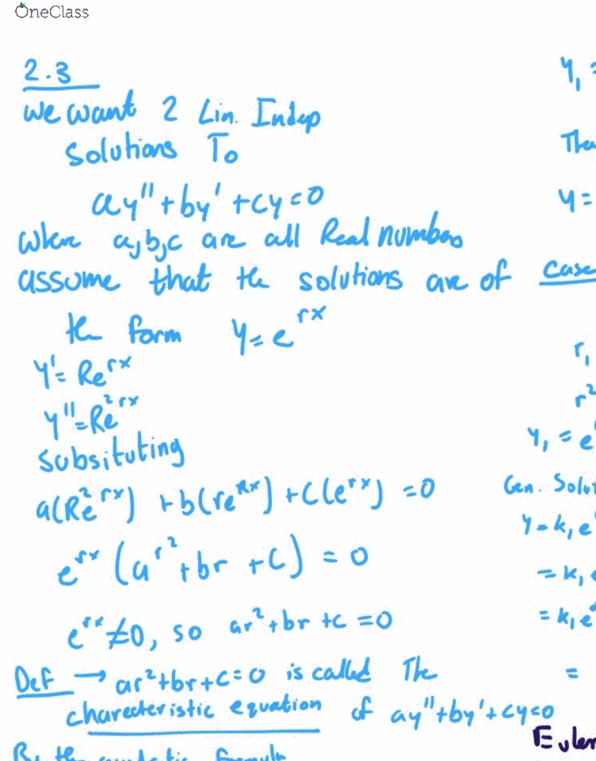 OneClass
2.3
We want 2 Lin. Indep
Solutions To
ay'' + by' + cy = 0
where a,b,c are all Real numbers
assume that the solutions are of
the form y = e^rx
y' = Re^rx
y'' = R^2e^rx
Subsituting
a(R^2e^rx) + b(re^Rx) + c(e^rx) = 0
e^rx (ar^2 + br + c) = 0
e^rx ≠ 0, so ar^2 + br + c = 0
Def → ar^2 + br + c = 0 is called The
charecteristic equation of ay'' + by' + cy = 0
By the
y₁ =
y =
case
r₁
r^2
y₁ = e
Gen. Solut
y = k₁e
= k₁e
= k₁e
=
Euler